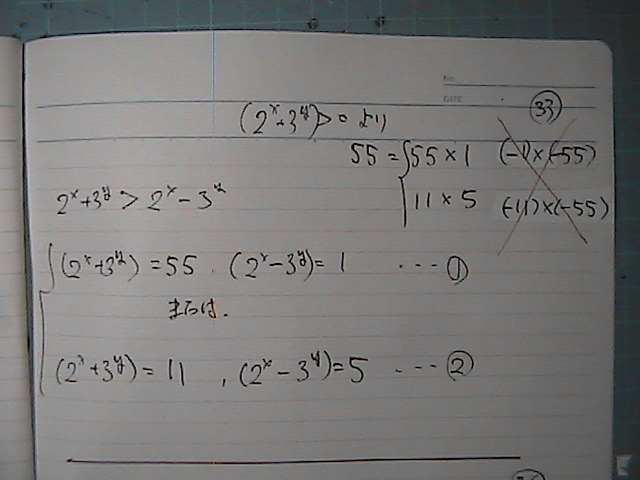 No.
DATE
(2^x+3^y)>0 より ㉝
55 = { 55×1 (-1)×(-55)
11×5 (-11)×(-55)
2^x+3^y > 2^x-3^y
{ (2^x+3^y) = 55 . (2^x-3^y) = 1 ... ①
または.
(2^x+3^y) = 11 , (2^x-3^y) = 5 ... ②